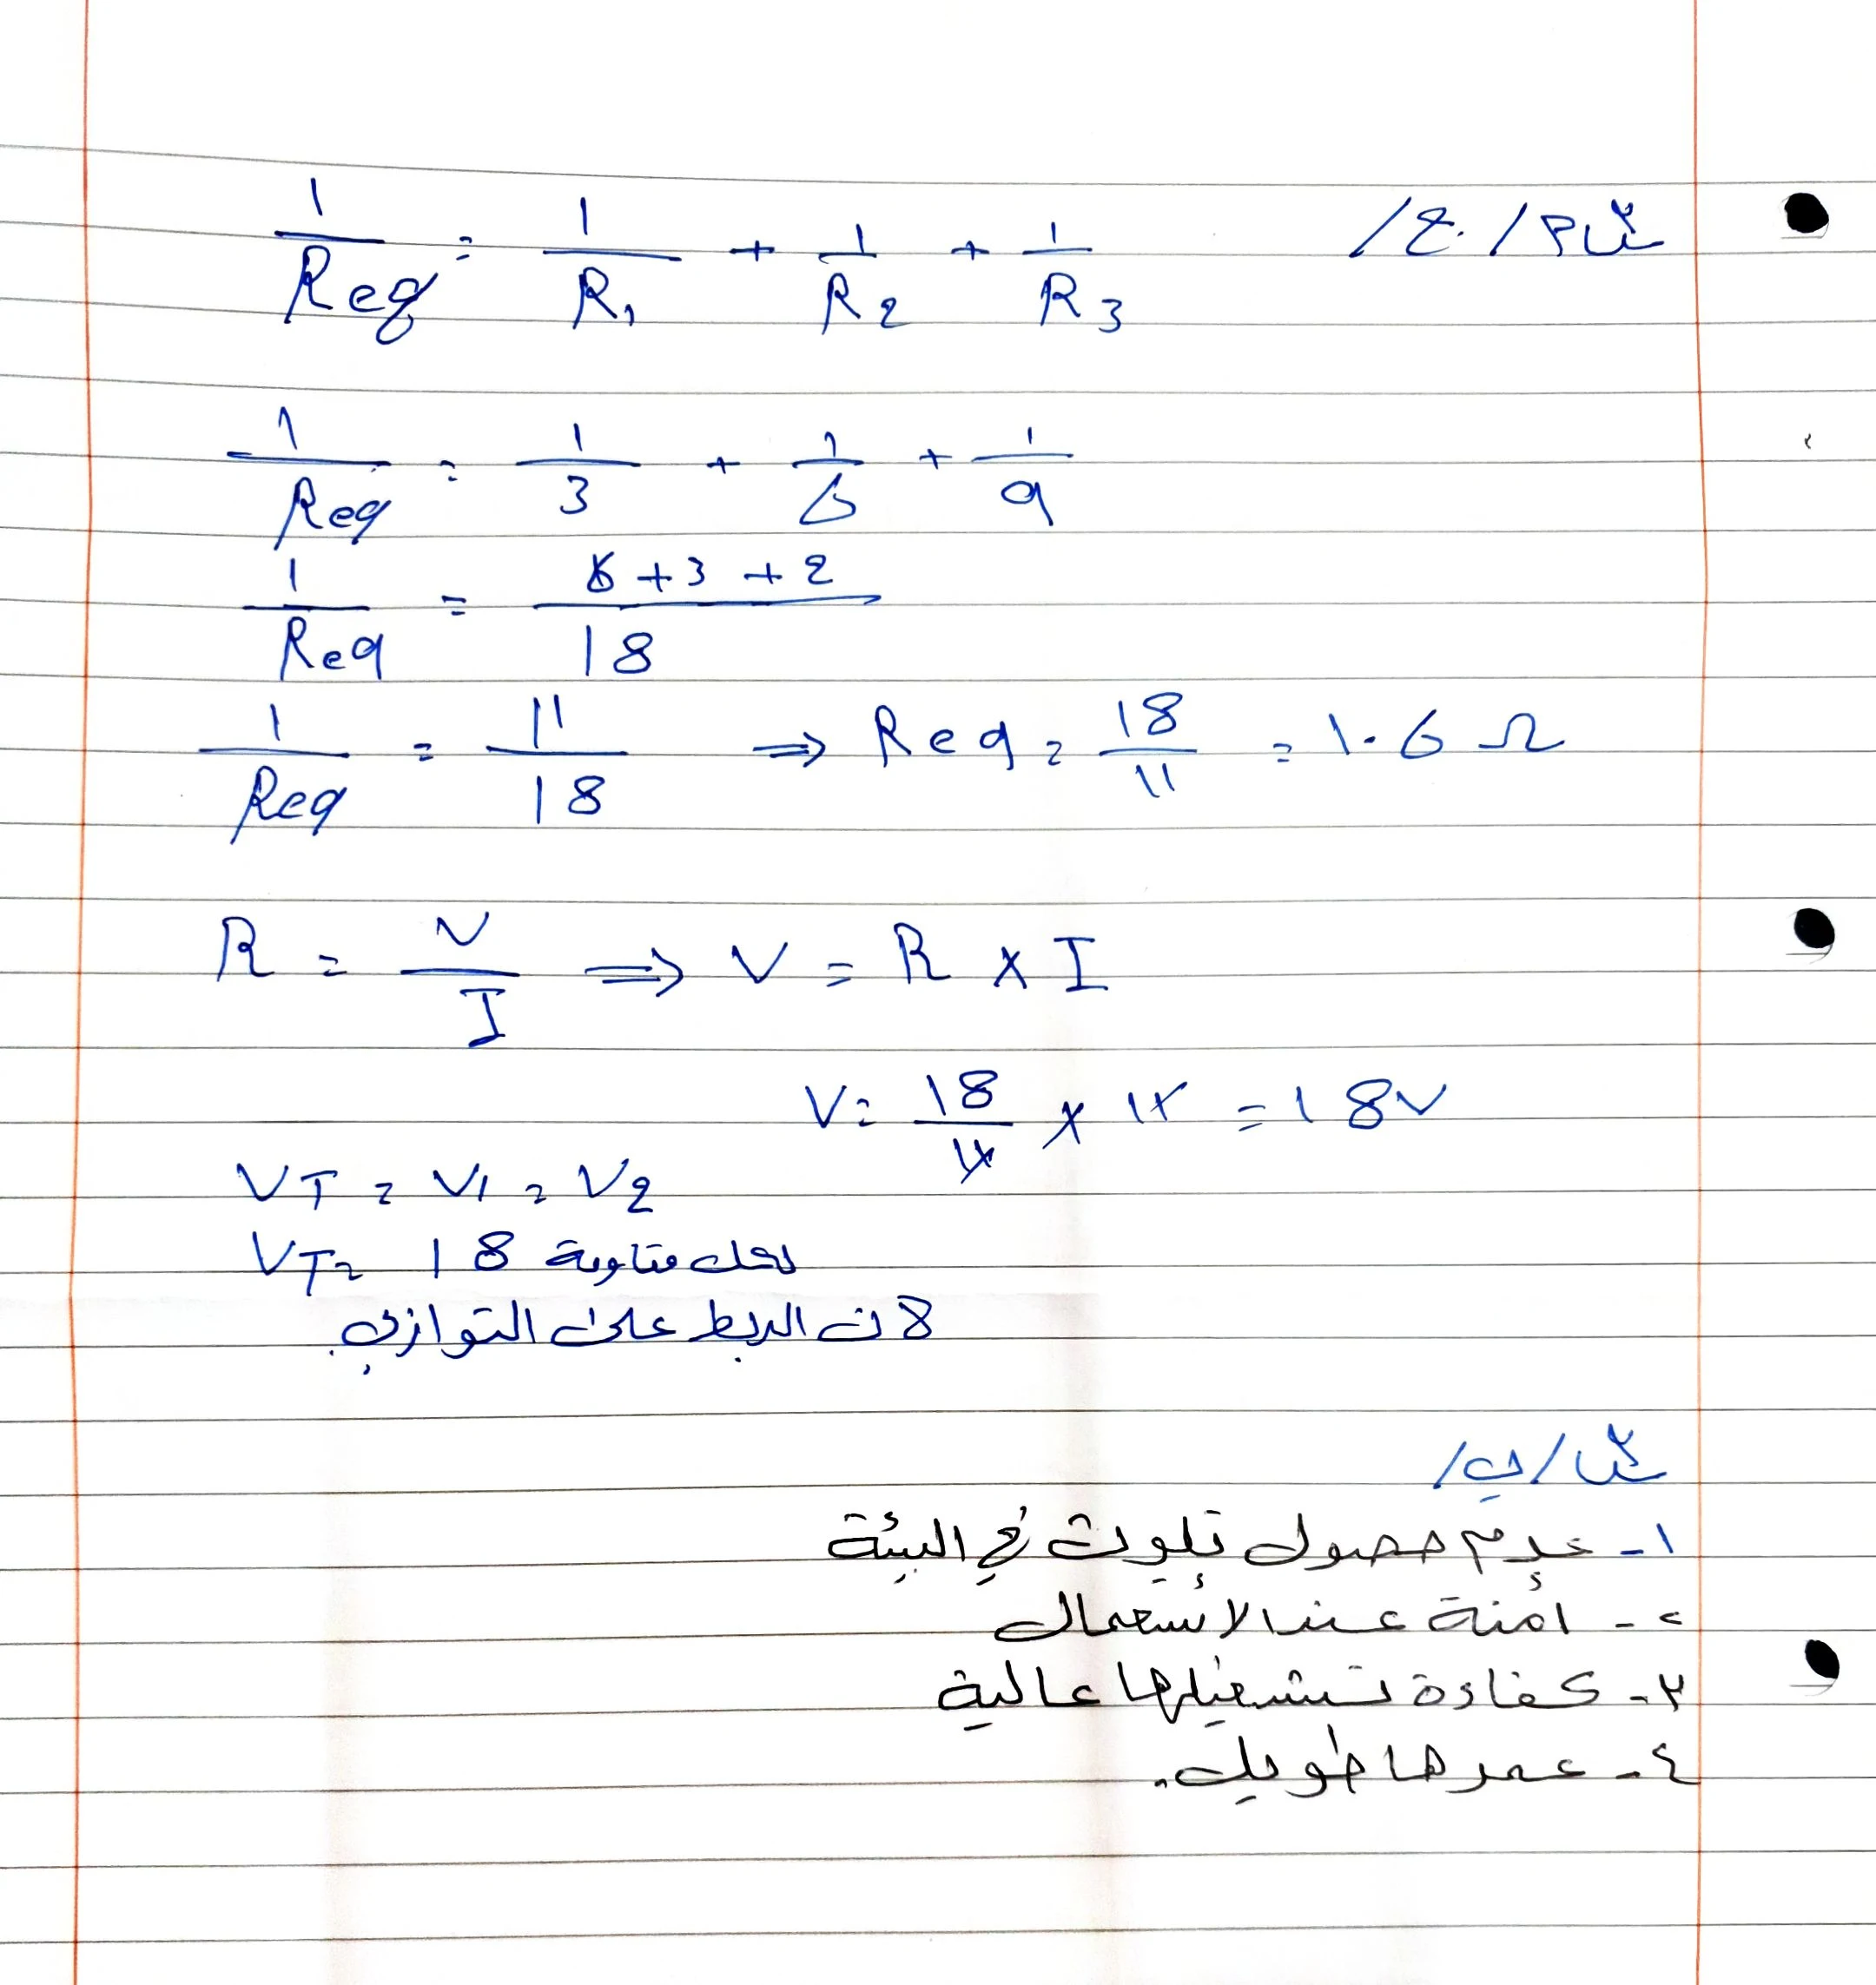 س٢/ج/
1/Req = 1/R1 + 1/R2 + 1/R3
1/Req = 1/3 + 1/6 + 1/9
1/Req = 6+3+2/18
1/Req = 11/18 ⇒ Req = 18/11 = 1.6 Ω
R = V/I ⇒ V = R × I
V = 18/11 × 11 = 18V
VT = V1 = V2
VT = 18 لكل مقاومة
لان الربط على التوازي.
س٢/ب/
١- عدم حصول تلوث في البيئة
٢- امنة عند الأستعمال
٣- كفاءة تشغيلها عالية
٤- عمرها طويل.